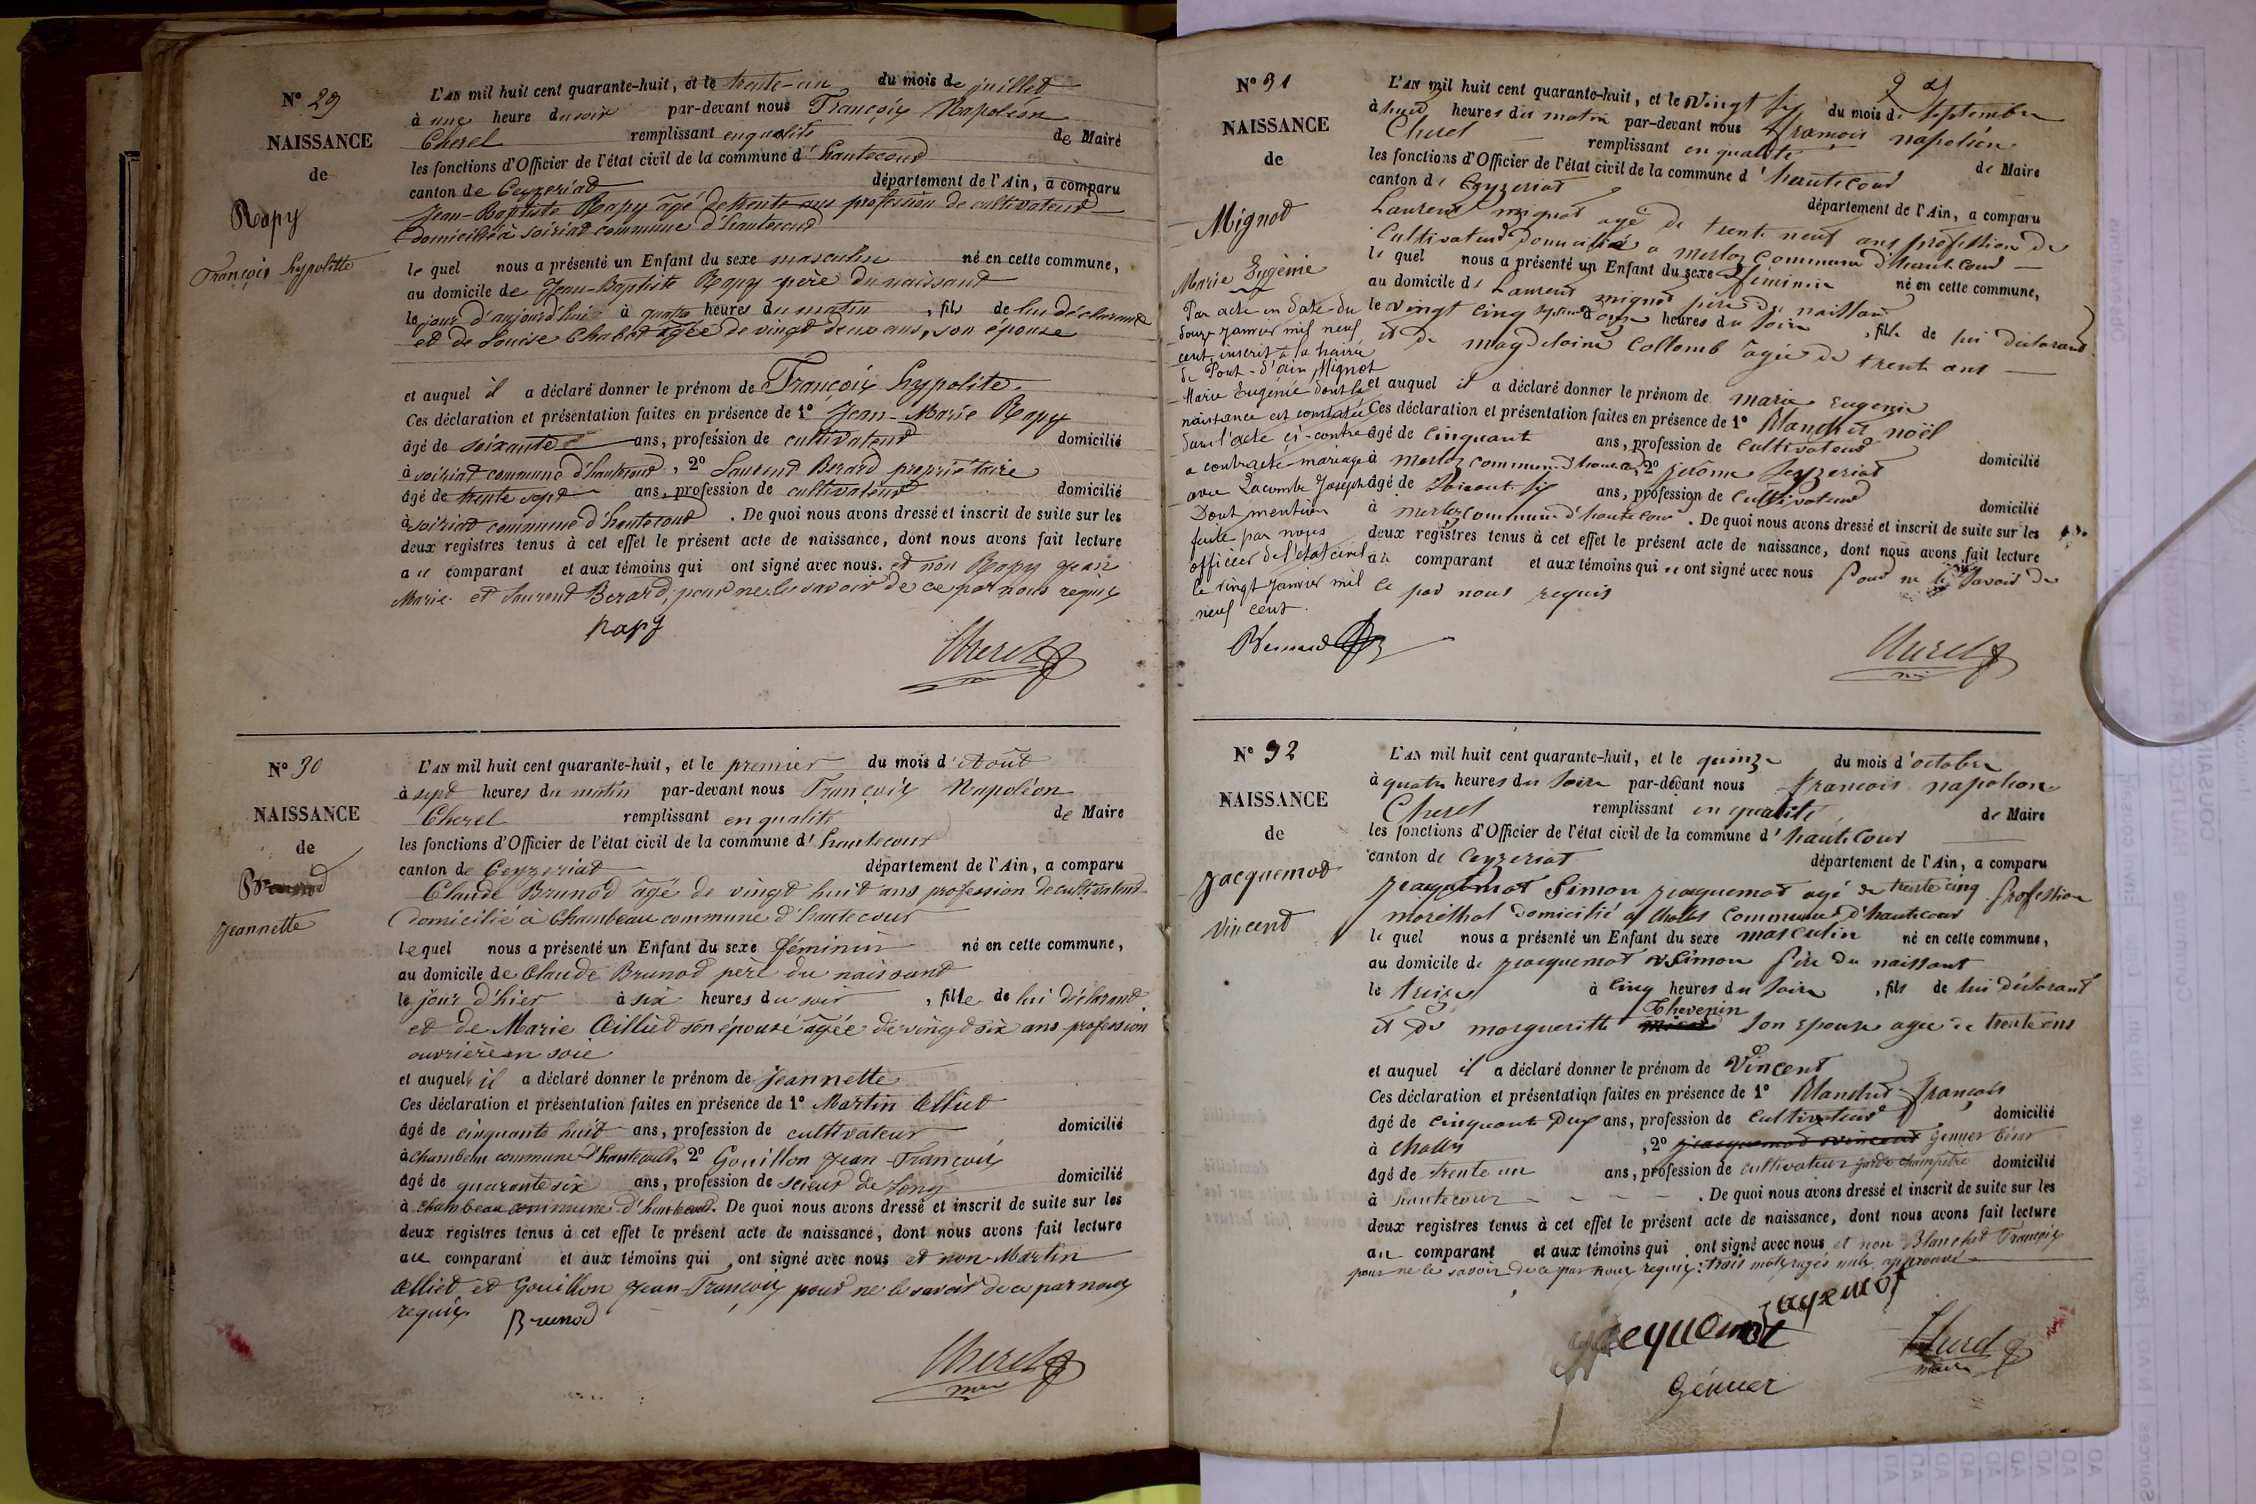 N° 29
NAISSANCE
de
Rapy
François hypolitte
L'AN mil huit cent quarante-huit, et le trente-un du mois de juillet
à une heure du soir par-devant nous François Napoléon
Cherel remplissant en qualité de Maire
les fonctions d'Officier de l'état civil de la commune d'hautecour
canton de Ceyzeriat département de l'Ain, a comparu
Jean-Baptiste Rapy agé de trente ans profession de cultivateur
domicilié à soiriat commune d'hautecour
lequel nous a présenté un Enfant du sexe masculin né en cette commune,
au domicile de Jean-Baptiste Rapy père du naissant
le jour d'aujourd'hui à quatre heures du matin, fils de lui déclarant
et de Louise Chabot agée de vingt deux ans, son épouse
et auquel il a déclaré donner le prénom de François hypolite.
Ces déclaration et présentation faites en présence de 1° Jean-Marie Rapy
âgé de soixante ans, profession de cultivateur domicilié
à soiriat commune d'hautecour, 2° Laurent Berard propriétaire
âgé de trente sept ans, profession de cultivateur domicilié
à soiriat commune d'hautecour. De quoi nous avons dressé et inscrit de suite sur les
deux registres tenus à cet effet le présent acte de naissance, dont nous avons fait lecture
au comparant et aux témoins qui ont signé avec nous. et non Rapy Jean
Marie et Laurent Berard, pour ne le savoir de ce par nous requis
Rapy
Cherel
N° 30
NAISSANCE
de
Brunod
Jeannette
L'AN mil huit cent quarante-huit, et le premier du mois d'Août
à sept heures du matin par-devant nous François Napoléon
Cherel remplissant en qualité de Maire
les fonctions d'Officier de l'état civil de la commune d'hautecour
canton de Ceyzeriat département de l'Ain, a comparu
Claude Brunod agé de vingt huit ans profession de cultivateur
domicilié à Chambeau commune d'hautecour
lequel nous a présenté un Enfant du sexe féminin né en cette commune,
au domicile de Claude Brunod père du naissant
le jour d'hier à six heures du soir, fille de lui déclarant
et de Marie Œilliet son épouse agée de vingt six ans profession
ouvrière en soie
et auquel il a déclaré donner le prénom de Jeannette
Ces déclaration et présentation faites en présence de 1° Martin Œlliet
âgé de cinquante huit ans, profession de cultivateur domicilié
à chambeau commune d'hautecour, 2° Gouillon Jean-François
âgé de quarante six ans, profession de scieur de long domicilié
à chambeau commune d'hautecour. De quoi nous avons dressé et inscrit de suite sur les
deux registres tenus à cet effet le présent acte de naissance, dont nous avons fait lecture
au comparant et aux témoins qui ont signé avec nous et non Martin
Œlliet et Gouillon Jean-François pour ne le savoir de ce par nous
requis
Brunod
Cherel
maire
N° 31
NAISSANCE
de
Mignot
Marie Eugènie
Par acte en date du
douze janvier mil neuf
cent, inscrit à la mairie
de Pont-d'ain, Mignot
Marie Eugénie dont la
naissance est constatée
dans l'acte ci-contre
a contracté mariage
avec Lacombe Joseph
Dont mention
faite par nous
officier de l'état civil
le vingt janvier mil
neuf cent.
L'AN mil huit cent quarante-huit, et le vingt six du mois de septembre
à huit heures du matin par-devant nous françois napoléon
Cherel remplissant en qualité de Maire
les fonctions d'Officier de l'état civil de la commune d'hautecour
canton de Ceyzeriat département de l'Ain, a comparu
Laurent mignot agé de trente neuf ans profession de
cultivateur domicilié a merloz commune d'hautecour
lequel nous a présenté un Enfant du sexe féminin né en cette commune,
au domicile de Laurent mignot père du naissant
le vingt cinq septembre à onze heures du soire, fille de lui déclarant
et de magdelaine Collomb agée de trente ans
et auquel il a déclaré donner le prénom de marie eugenie
Ces déclaration et présentation faites en présence de 1° Blanchet noël
âgé de cinquant ans, profession de cultivateur domicilié
à merloz commune d'hautecour, 2° jerôme
âgé de soixant six ans, profession de cultivateur domicilié
à merloz commune d'hautecour. De quoi nous avons dressé et inscrit de suite sur les
deux registres tenus à cet effet le présent acte de naissance, dont nous avons fait lecture
au comparant et aux témoins qui ont signé avec nous pour ne le savoir de
ce par nous requis
Cherel
N° 32
NAISSANCE
de
Jacquemod
Vincent
L'AN mil huit cent quarante-huit, et le quinze du mois d'octobre
à quatre heures du soire par-devant nous françois napoleon
Cherel remplissant en qualité de Maire
les fonctions d'Officier de l'état civil de la commune d'hautecour
canton de Ceyzeriat département de l'Ain, a comparu
jacquemot Simon jacquemot agé de trente cinq profession
maréthal domicilié a Challes commune d'hautecour
lequel nous a présenté un Enfant du sexe masculin né en cette commune,
au domicile de jacquemot Simon père du naissant
le treize à cinq heures du soire, fils de lui déclarant
Thevenin
et de margueritte son epouse agée de trente ans
et auquel il a déclaré donner le prénom de Vincent
Ces déclaration et présentation faites en présence de 1° Blanchet françois
âgé de cinquante deux ans, profession de cultivateur domicilié
à Challes, 2° jacquemod vincent Genner
âgé de trente un ans, profession de cultivateur garde champêtre domicilié
à hautecour. De quoi nous avons dressé et inscrit de suite sur les
deux registres tenus à cet effet le présent acte de naissance, dont nous avons fait lecture
au comparant et aux témoins qui ont signé avec nous et non Blanchet François
pour ne le savoir de ce par nous requis: trois mots rayés nuls approuvé
Jacquemot
Cherel
maire